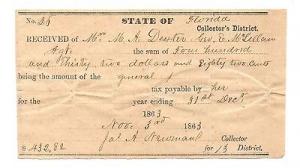 No. 26 STATE OF Florida
Collector's District.
RECEIVED of Mrs M. A. Dexter Geo. E. McClellan
Agt. the sum of Four hundred
and Thirty two dollars and Eighty two cents
being the amount of the general
tax payable by her
for the year ending 31st Decr.
1863
Nov. 3rd 1863
A. Newmans Collector
$432,82 for 13 District.